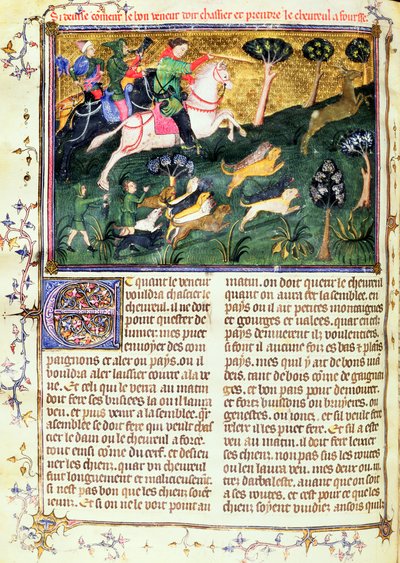 Ci deuise coment le bon veneur doit chassier et prendre le cheureul a force.
Et quant le veneur
vouldra chassier le
cheureul. il ne doit
point quester de
limier. mes puet
enuoyer des com
paignons et aler ou pays. ou il
vouldra aler laissier courre a la ve
ue. Et celi qui le verra au matin
doit fere ses brisiees la ou il l'aura
veu. et puis venir a l'asemblee. qr
asemblee se doit fere qui veult chas
cier le dain ou le cheureul a force.
tout einsi come du cerf. et desieu
ner les chiens. quar un cheureul
fuit longuement et malicieusemt.
si nest pas bon que les chiens soiet
ieuns. Et si on ne le voit point au
matin. on doit querir le cheureul
quant on aura fet la semblee. en
pays ou il ait petites montaignes
et gorges et valees. quar en tel
pays demuerent ilz voulentiers.
et sont il aucune fois es bas et plains
pays. mes quil y ait de bons vi
ders. tant de bois come de gaigna
ges. et bon pais pour demorer.
et fors buissons ou bruyeres. ou
genestes. ou ioncs. et sil veult fere
limer il les puet fere. Et sil a este
veu au matin. il doit fere lesser
ses chiens. non pas sus les routes
ou len l'aura veu. mes deux ou
traiz d'arbaleste. auant que on soit
a ses routes. et cest pour ce que les
chiens soyent vuidiez ansois quilz